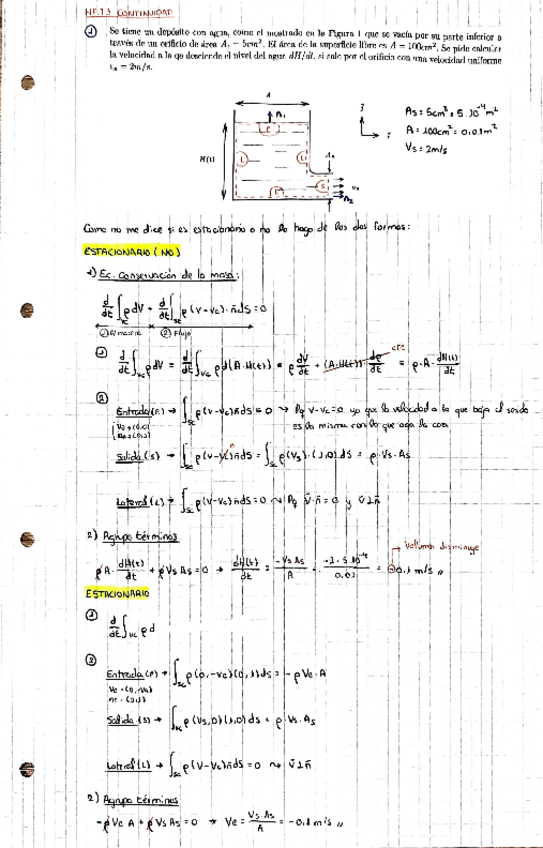 HF.T3 CONTINUIDAD
① Se tiene un depósito con agua, como el mostrado en la Figura 1 que se vacía por su parte inferior a
través de un orificio de área Aₛ = 5cm². El área de la superficie libre es A = 100cm². Se pide calcular
la velocidad a la qe desciende el nivel del agua, dH/dt, si sale por el orificio con una velocidad uniforme
vₛ = 2m/s.
A
H(t)
As = 5cm² = 5·10⁻⁴ m²
A = 100cm² = 0,01m²
Vs = 2m/s
Como no me dice si es estacionario o no lo hago de las dos formas:
ESTACIONARIO (NO)
1) Ec. Conservación de la masa:
d/dt ∫vc ρdV + d/dt ∫sc ρ(v-vc)·n̄ dS = 0
② Flujo
① d/dt ∫vc ρdV = d/dt ∫vc ρd(A·H(t)) = ρ dV/dt + (A·H(t)) dρ/dt = ρ·A· dH(t)/dt
cte
②
Entrada (E) → ∫sc ρ(v-vc)n̄ds = 0 → Pq v-vc=0 ya que la velocidad a la que baja el
es la misma con lo que
Salida (S) → ∫sc ρ(v-vc)n̄ds = ∫sc ρ(Vs)·(1,0)ds = ρ·Vs·As
Lateral (L) → ∫sc ρ(v-vc)n̄ds = 0 → Pq v̄·n̄ = 0 y v̄⊥n̄
2) Agrupo términos
volumen disminuye
ρA· dH(t)/dt + ρVsAs = 0 → dH(t)/dt = -VsAs/A = -2·5·10⁻⁴/0,01 = -0,1 m/s
ESTACIONARIO
① d/dt ∫vc ρd
②
Entrada (e) → ∫sc ρ(0,-ve)(0,1)ds = -ρVe·A
Salida (s) → ∫sc ρ(Vs,0)(1,0)ds = ρ·Vs·As
Lateral (L) → ∫sc ρ(v-vc)n̄ds = 0 → v̄⊥n̄
2) Agrupo términos
-ρVeA + ρVsAs = 0 → Ve = Vs·As/A = -0,1 m/s